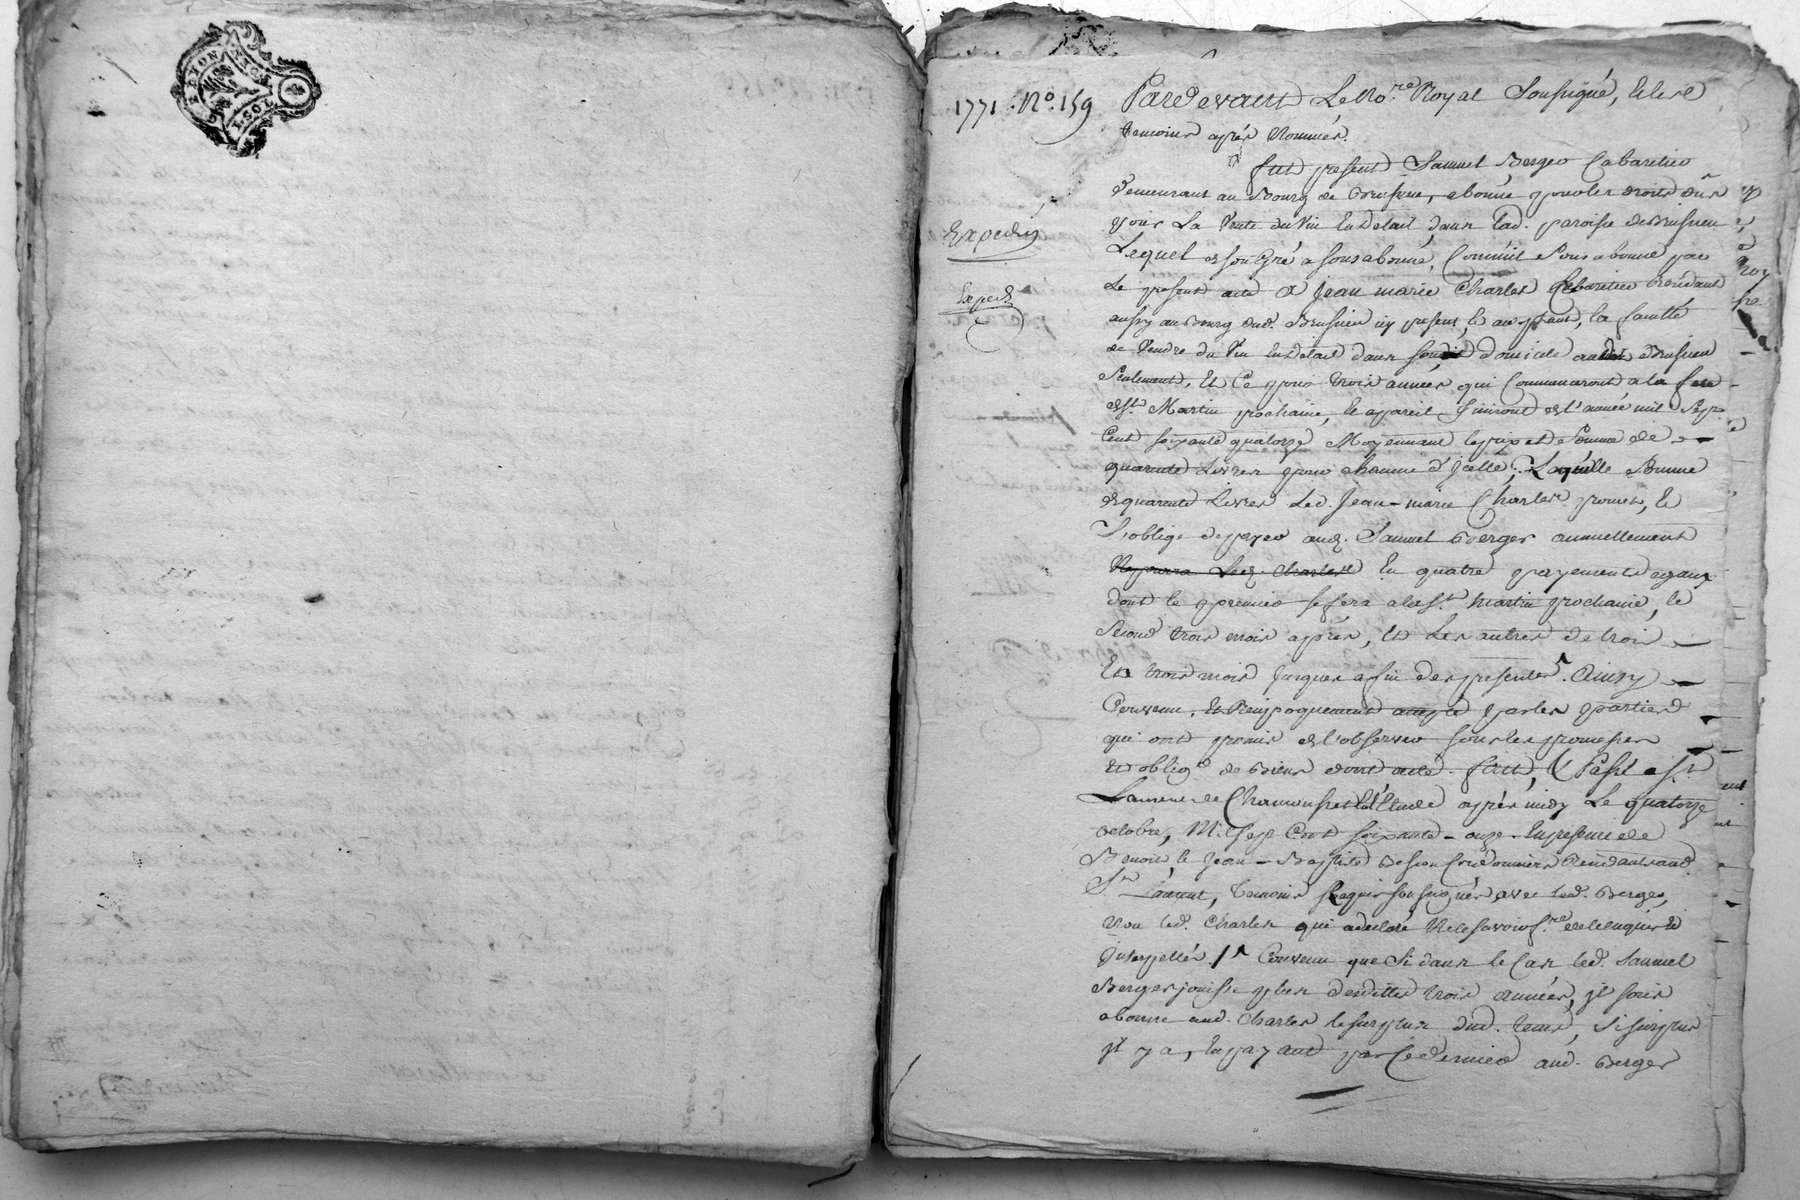 LYON
1.SOL
1771. N.º 159
Expedié
Exped.
Pardevant Le No.re Royal Soussigné, et les
temoins après Nommés.
fut present Samuel Berger Cabaretier
demeurant au Bourg de Brussieu, abonné pour les droits dûs
pour La Vente du Vin En Detail dans lad. paroisse de Brussieu
Lequel de son Gré a sousabonné, Comm'il Sous abonne par
Le present acte a Jean marie Charles Cabaretier Residant
aussy au Bourg dud. Brussieu icy present, et acceptant, la faculté
de Vendre du Vin En Detail dans son domicile aud. Brussieu
Seulement, Et Ce pour trois années qui Commenceront a la fete
de St. Martin prochaine, et a pareil finiront de l'année mil Sept
Cent soixante quatorze Moyennant le prix et Somme de
quarante Livres pour chacune d'Icelles, Laquelle Somme
de quarante Livres Led. Jean-marie Charles promet, et
S'oblige de payer aud. Samuel Berger annuellement
Led. Charles En quatre payements egaux
dont le premier se fera a la St. martin prochaine, le
Second trois mois après, et Les autres de trois
En trois mois jusques a fin des presentes. Ainsy
Convenu, et Reciproquement accepté par les parties
qui ont promis de l'observer sous les promesses
et oblig.on de Biens dont acte. fait, & Passé a St.
Laurent de Chamousset Et Etude après midy Le quatorze
octobre, Mil sept Cent soixante-onze En presence de
Benoit, et Jean-Baptiste Cordonniers Residants aud.
St. Laurent, temoins Requis soussignés avec led. Berger,
Non led. Charles qui a declaré Ne le savoir f.re de ce enquis et
Interpellés. / Convenu que Si dans le Cas led. Samuel
Berger jouisse plus desdittes trois années, il sous
abonne aud. Charles le surplus dud. tems, si surplus
il y a, En payant par ce dernier aud. Berger